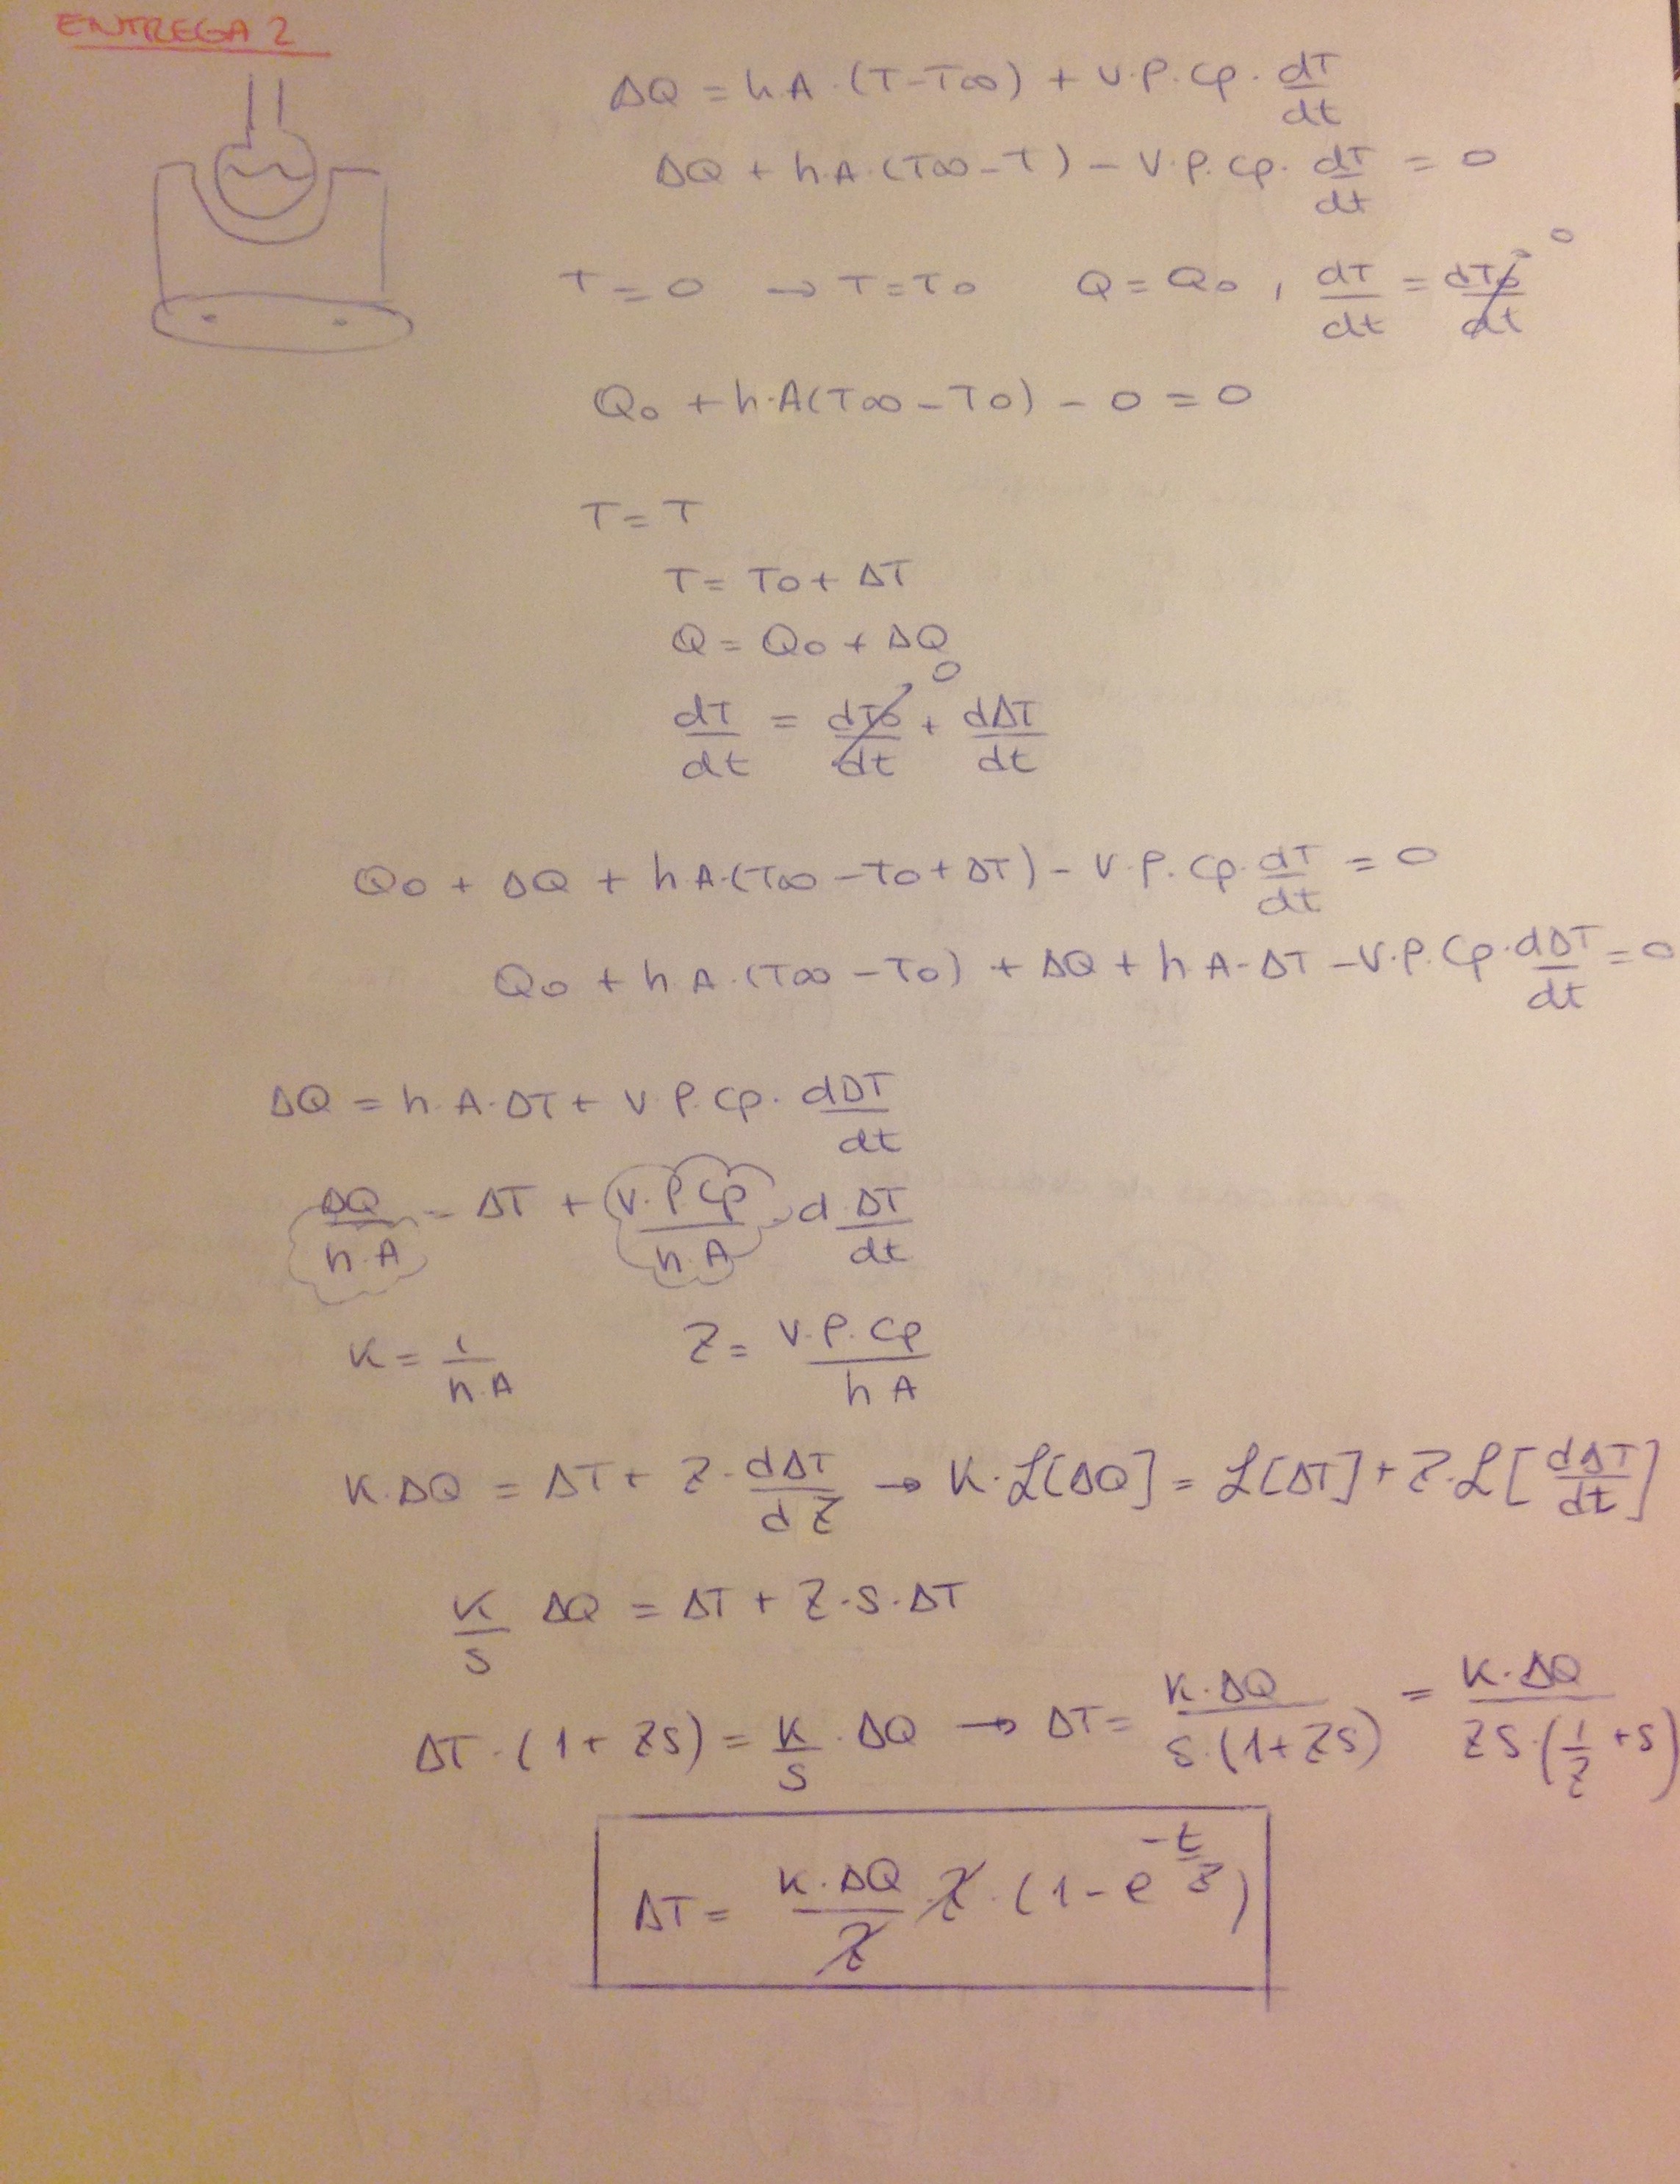 ENTREGA 2
ΔQ = h.A.(T-T∞) + V.ρ.Cp. dT/dt
ΔQ + h.A.(T∞-T) - V.ρ.Cp. dT/dt = 0
T = 0 → T = T0 Q = Q0, dT/dt = dT0/dt 0
Q0 + h.A(T∞-T0) - 0 = 0
T = T
T = T0 + ΔT
Q = Q0 + ΔQ
dT/dt = dT0/dt 0 + dΔT/dt
Q0 + ΔQ + h A.(T∞-T0+ΔT) - V.ρ.Cp. dT/dt = 0
Q0 + h A.(T∞-T0) + ΔQ + h A.ΔT - V.ρ.Cp. dΔT/dt = 0
ΔQ = h.A.ΔT + V.ρ.Cp. dΔT/dt
ΔQ/h.A = ΔT + V.ρ Cp/h.A . d ΔT/dt
K = 1/h.A Z = V.ρ.Cp/h A
K.ΔQ = ΔT + Z. dΔT/dZ → K.ℒ[ΔQ] = ℒ[ΔT] + Z.ℒ[dΔT/dt]
K/S ΔQ = ΔT + Z.S.ΔT
ΔT.(1+ZS) = K/S . ΔQ → ΔT = K.ΔQ/S.(1+ZS) = K.ΔQ/ZS.(1/Z+S)
ΔT = K.ΔQ/Z . Z . (1-e^-t/Z)